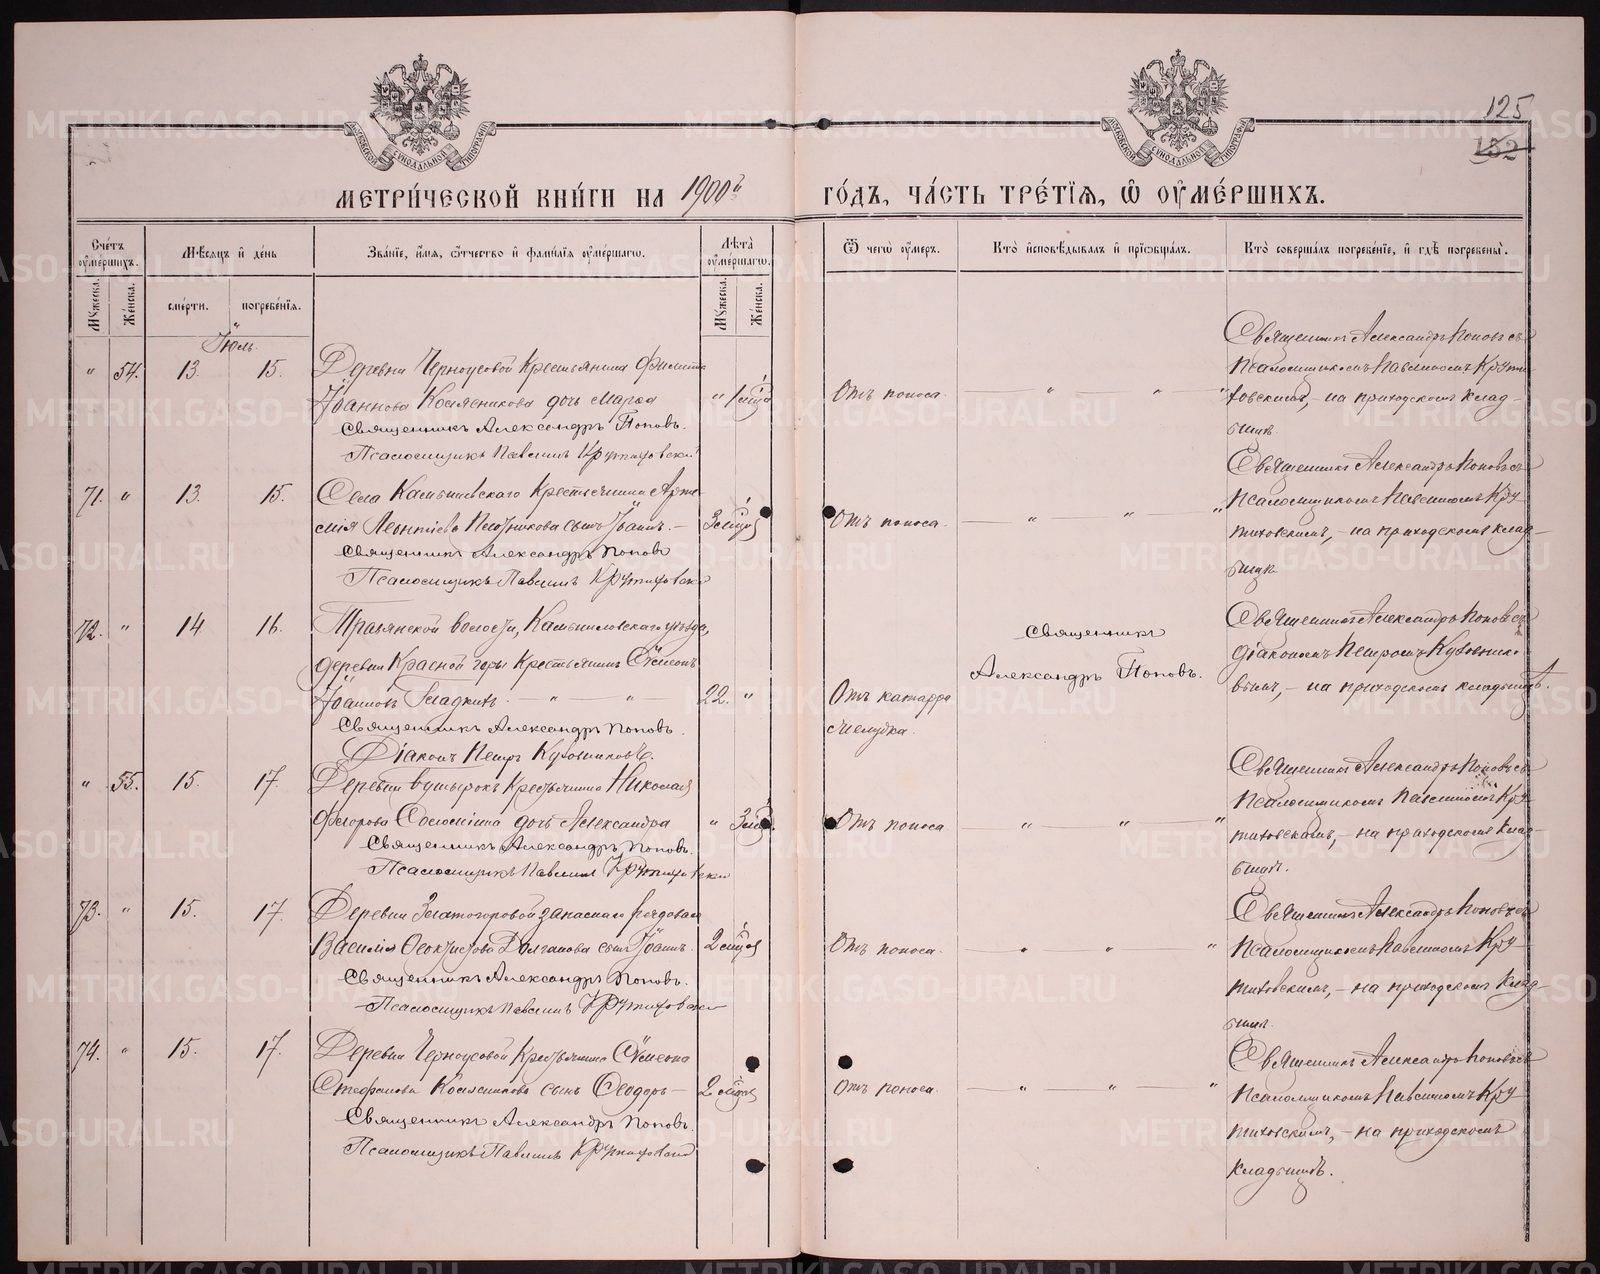 125
152
МОСКОВСКОЙ СѴНОДАЛЬНОЙ ТИПОГРАФІИ
МОСКОВСКОЙ СѴНОДАЛЬНОЙ ТИПОГРАФІИ
МЕТРИ́ЧЕСКОЙ КНИ́ГИ НА 1900й ГО́ДЪ, ЧА́СТЬ ТРЕ́ТІѦ, Ѡ ОУМЕ́РШИХЪ.
Сче́тъ оуме́ршихъ.
Мѣ́сяцъ и де́нь
Зва́ніе, и́мѧ, ѻ́тчество и фами́лїѧ оуме́ршагѡ.
Лѣ́та оуме́ршагѡ.
Ѿ чегѡ̀ оу́меръ.
Кто̀ и҆сповѣ́дывалъ и прїѡбща́лъ.
Кто̀ соверша́лъ погребе́нїе, и гдѣ̀ погребены̀.
Мꙋ́жеска.
Же́нска.
сме́рти.
погребе́нїѧ.
Мꙋ́жеска.
Же́нска.
Іюль
" 54. 13. 15. Деревни Черноусовой Крестьянина Филиппа
Іоаннова Колясникова дочь Марѳа " 1 мѣся
Священникъ Александръ Поповъ.
Псаломщикъ Павлинъ Крутиховскій
Отъ поноса. " " "
Священникъ Александръ Поповъ съ
Псаломщикомъ Павлиномъ Крути-
ховскимъ, на приходскомъ клад-
бищѣ.
71. " 13. 15. Села Камышевскаго Крестьянина Арте-
мія Леонтіева Плотникова сынъ Іоаннъ. 3 мѣся
Священникъ Александръ Поповъ
Псаломщикъ Павлинъ Крутиховскій
Отъ поноса. " " "
Священникъ Александръ Поповъ съ
Псаломщикомъ Павлиномъ Кру-
тиховскимъ, на приходскомъ клад-
бищѣ.
72. " 14 16. Травянской волости, Камышловскаго уѣзда,
деревни Красной горы Крестьянинъ Сѵмеонъ
Іоанновъ Гладкихъ. " " 22. "
Священникъ Александръ Поповъ.
Діаконъ Петръ Кузовниковъ.
Отъ катарра
желудка.
Священникъ
Александръ Поповъ.
Священникъ Александръ Поповъ съ
діакономъ Петромъ Кузовнико-
вымъ, на приходскомъ кладбищѣ.
" 55. 15. 17. Деревни Бутырокъ Крестьянина Николая
Ѳеодорова Соломеина дочь Александра " 3 мѣс.
Священникъ Александръ Поповъ.
Псаломщикъ Павлинъ Крутиховскій
Отъ поноса " " "
Священникъ Александръ Поповъ съ
Псаломщикомъ Павлиномъ Кру-
тиховскимъ, на приходскомъ клад-
бищѣ.
73. " 15. 17. Деревни Златогоровой запаснаго рядоваго
Василія Ѳеоктистова Долганова сынъ Іоаннъ. 2 мѣся
Священникъ Александръ Поповъ.
Псаломщикъ Павлинъ Крутиховскій
Отъ поноса. " " "
Священникъ Александръ Поповъ съ
Псаломщикомъ Павлиномъ Кру-
тиховскимъ, на приходскомъ клад-
бищѣ.
74. " 15. 17. Деревни Черноусовой Крестьянина Сѵмеона
Стефанова Колясникова сынъ Ѳеодоръ 2 мѣся
Священникъ Александръ Поповъ.
Псаломщикъ Павлинъ Крутиховскій
Отъ поноса. " " "
Священникъ Александръ Поповъ съ
Псаломщикомъ Павлиномъ Кру-
тиховскимъ, на приходскомъ
кладбищѣ.
METRIKI.GASO-URAL.RU